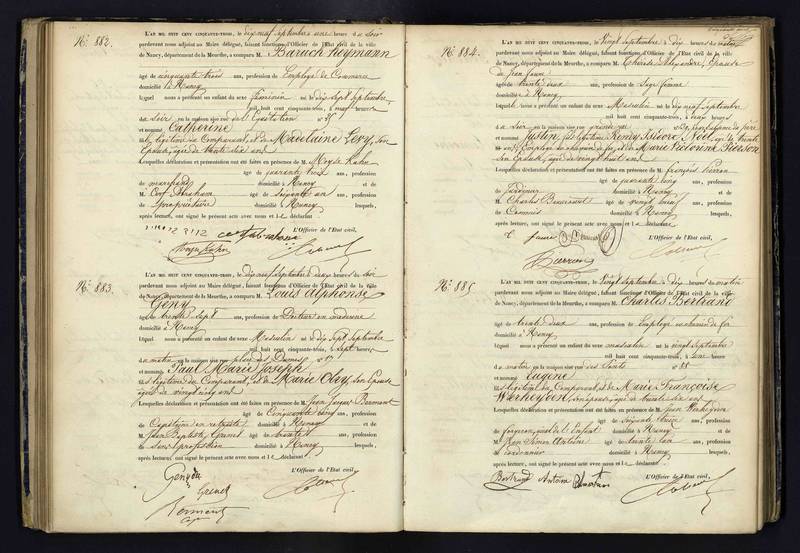 No. 882.
L'AN MIL HUIT CENT CINQUANTE-TROIS, le dix neuf Septembre à une heure du soir
pardevant nous adjoint au Maire délégué, faisant fonctions d'Officier de l'Etat civil de la ville
de Nancy, département de la Meurthe, a comparu M. Baruch Heymann
âgé de cinquante trois ans, profession de Employé de Commerce
domicilié à Nancy
lequel nous a présenté un enfant du sexe féminin né le dix Sept Septembre
mil huit cent cinquante-trois, à heures
du soir en la maison sise rue de l'Equitation n°
et nommé Catherine
fille légitime du Comparant, et de Madelaine Levy, Son
Epouse, âgée de trente six ans
Lesquelles déclaration et présentation ont été faites en présence de M. Moyse Kahn
âgé de quarante trois ans, profession
de marchand domicilié à Nancy et de
M. Cerf Abraham âgé de Soixante un ans, profession
de propriétaire domicilié à Nancy lesquels,
après lecture, ont signé le présent acte avec nous et le déclarant
L'Officier de l'Etat civil,
No. 883.
L'AN MIL HUIT CENT CINQUANTE-TROIS, le dix neuf Septembre à deux heures du soir
pardevant nous adjoint au Maire délégué, faisant fonctions d'Officier de l'Etat civil de la ville
de Nancy, département de la Meurthe, a comparu M. Louis Alphonse
Geny
âgé de trente Sept ans, profession de Docteur en médecine
domicilié à Nancy
lequel nous a présenté un enfant du sexe Masculin né le dix Sept Septembre
mil huit cent cinquante-trois, à Sept heures
du matin en la maison sise place des Dames n° 17
et nommé Paul Marie Joseph
fils légitime du Comparant, et de Marie Oley, Son Epouse
âgée de vingt cinq ans
Lesquelles déclaration et présentation ont été faites en présence de M. Jean Jacques Bermont
âgé de Cinquante cinq ans, profession
de Capitaine en retraite domicilié à Nancy et de
M. Jean Baptiste Grenet âgé de trente ans, profession
de Sans profession domicilié à Nancy lesquels,
après lecture, ont signé le présent acte avec nous et le déclarant
L'Officier de l'Etat civil,
Geny
Grenet
Bermont
No. 884.
L'AN MIL HUIT CENT CINQUANTE-TROIS, le Vingt Septembre à dix heures du matin
pardevant nous adjoint au Maire délégué, faisant fonctions d'Officier de l'Etat civil de la ville
de Nancy, département de la Meurthe, a comparu M. Alexandre, Epouse
de Jean faune
âgée de trente deux ans, profession de Sage femme
domiciliée à Nancy
lequel nous a présenté un enfant du sexe Masculin né le dix neuf Septembre
mil huit cent cinquante-trois, à heures
du soir en la maison sise rue
et nommé Justin, fils légitime de Remy Isidore Noël, âgé de trente
ans, Employé au chemin de fer, et de Marie Victorine Pierson
Son Epouse, âgée de vingt huit ans
Lesquelles déclaration et présentation ont été faites en présence de M. françois Pierron
âgé de quarante cinq ans, profession
de Jardinier domicilié à Nancy et de
M. Charles âgé de vingt neuf ans, profession
de Commis domicilié à Nancy lesquels,
après lecture, ont signé le présent acte avec nous et la déclarante
L'Officier de l'Etat civil,
Pierron
No. 885.
L'AN MIL HUIT CENT CINQUANTE-TROIS, le Vingt Septembre à dix heures du matin
pardevant nous adjoint au Maire délégué, faisant fonctions d'Officier de l'Etat civil de la ville
de Nancy, département de la Meurthe, a comparu M. Charles Bertrand
âgé de trente deux ans, profession de Employé au chemin de fer
domicilié à Nancy
lequel nous a présenté un enfant du sexe masculin né le vingt Septembre
mil huit cent cinquante-trois, à une heure
du matin en la maison sise rue des Ponts n° 88
et nommé Eugène
fils légitime du Comparant, et de Marie Françoise
Werheyden, son épouse, âgée de trente six ans
Lesquelles déclaration et présentation ont été faites en présence de M. Jean
âgé de ans, profession
de forgeron, oncle de l'Enfant domicilié à Nancy et de
M. Jean Simon Antoine âgé de trente un ans, profession
de cordonnier domicilié à Nancy lesquels,
après lecture, ont signé le présent acte avec nous et le déclarant
L'Officier de l'Etat civil,
Bertrand Antoine